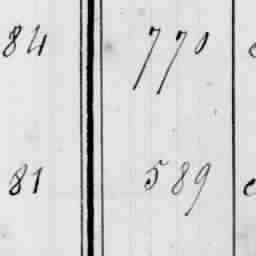 84 770
81 589